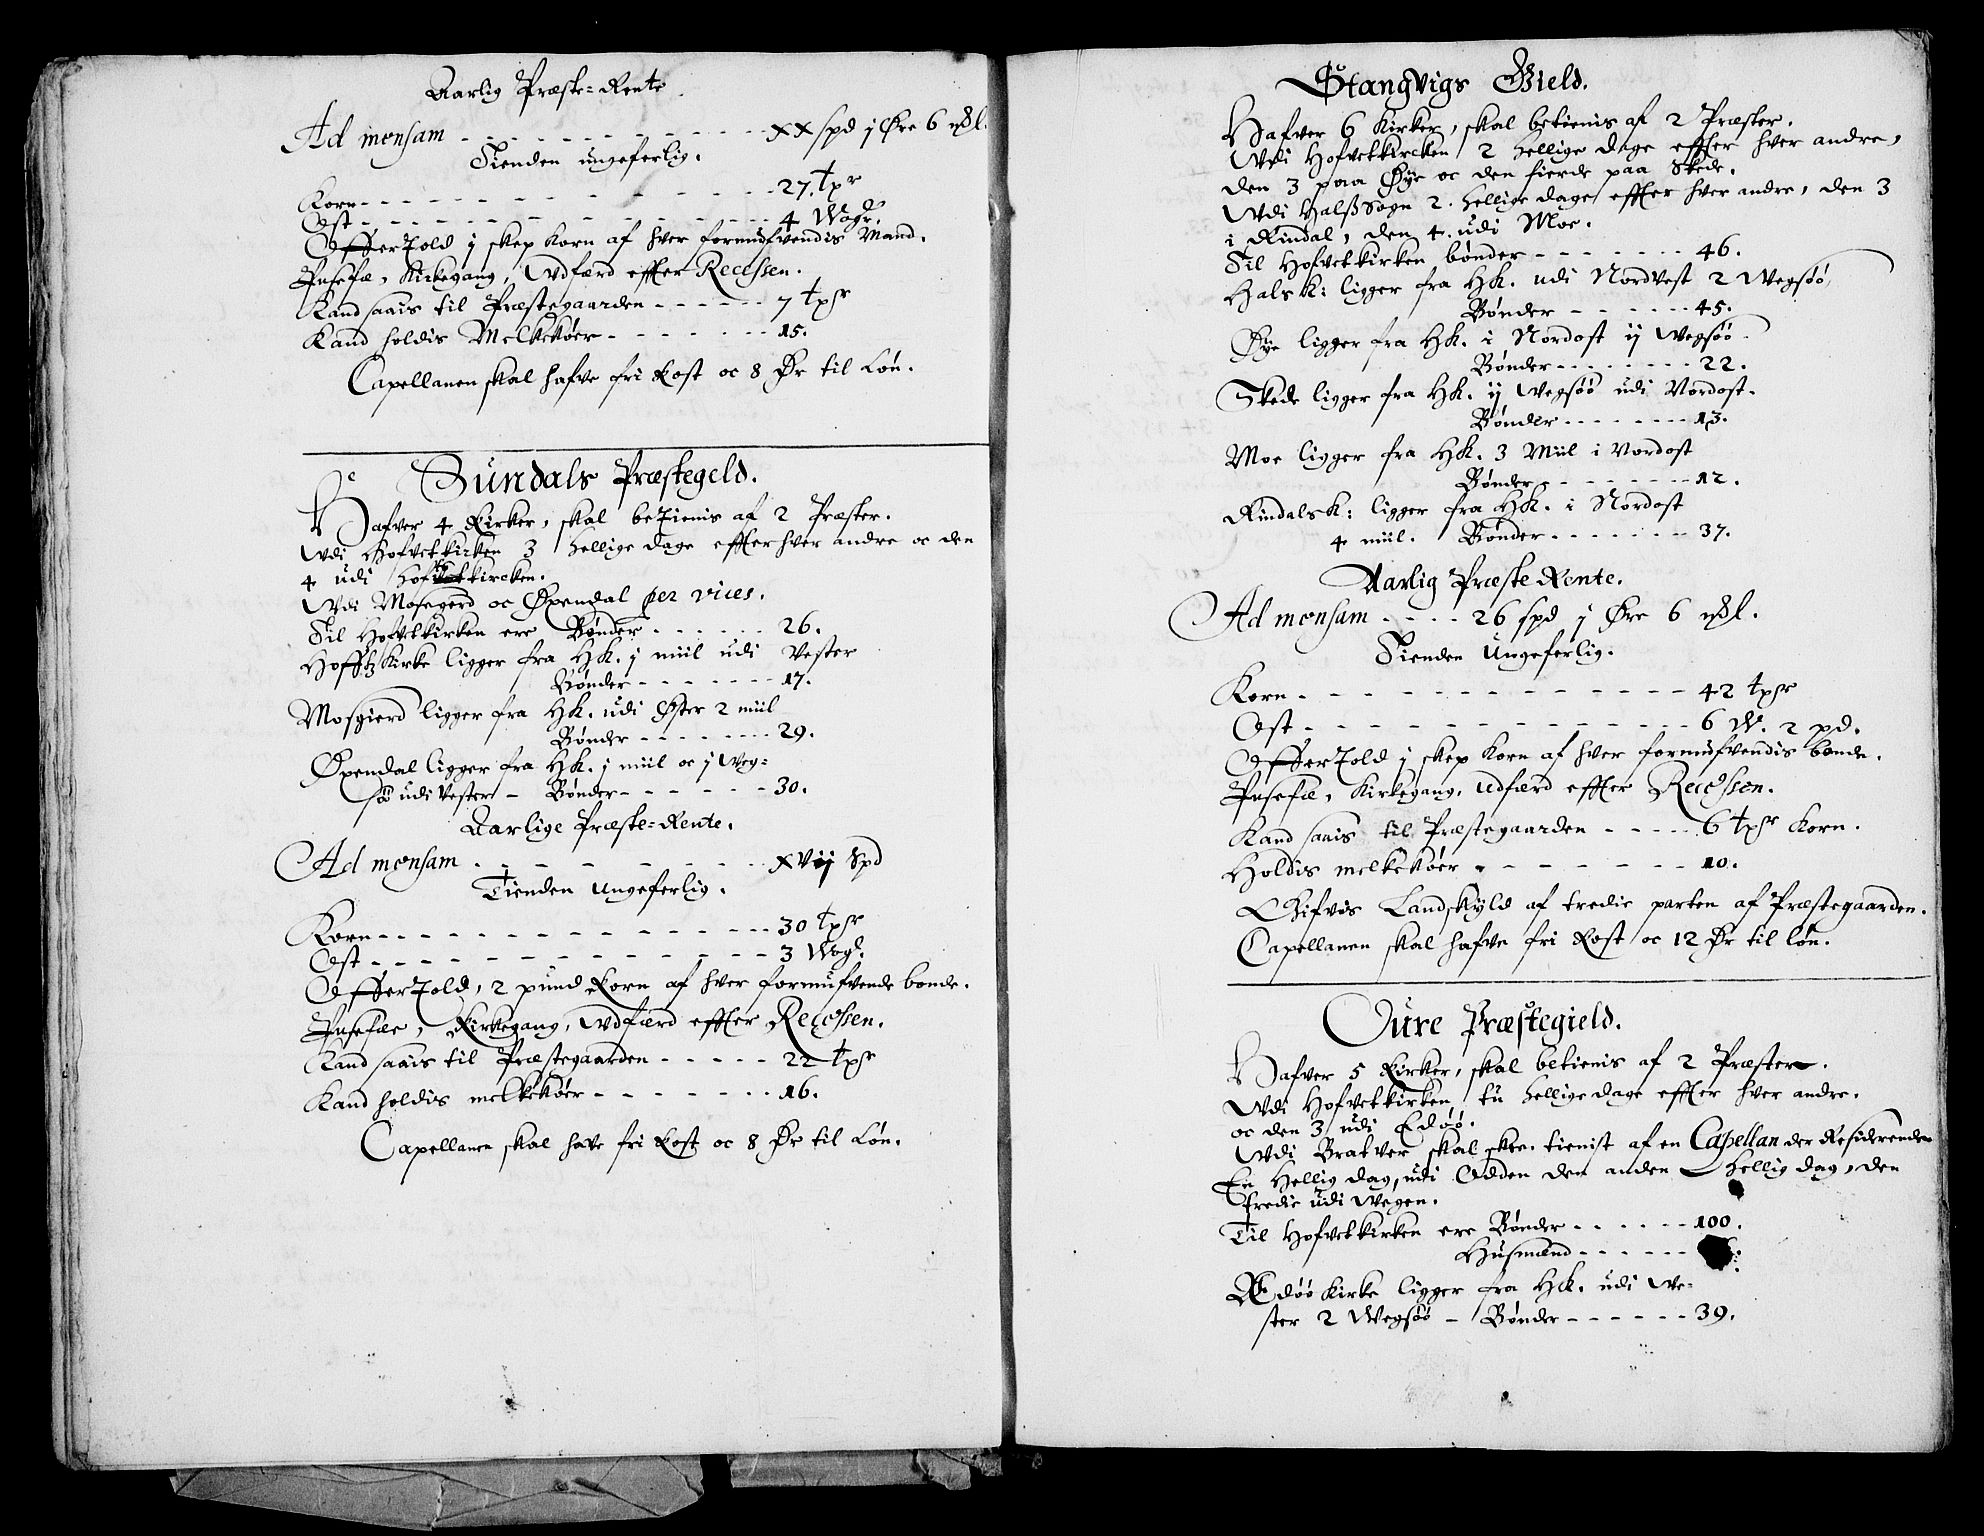 Aarlig Præste-Rente
Ad mensam - - - - - - - - - - - - XX spd j Øre 6
Tienden ungeferlig.
Korn - - - - - - - - - - - - - 27. tpr
Ost - - - - - - - - - - - - - 4 Wogr.
Offertold j skep Korn af hver formufvendis Mand.
Jnsefæ, Kirkegang, Wdfærd effter Recessen.
Kand saais til Præstegaarden - - - - - - 7 tpr
Kand holdis Melkekøer - - - - - - - 15.
Capellanen skal hafve fri Kost oc 8 Dr til Løn.
Sundals Præstegeld.
Hafver 4 Kirker, skal betienis af 2 Præster.
Wdi Hofvetkirken 3 hellige dage effter hver andre oc den
4 udi kircken.
Wdi Mosegerd oc Øxendal per vices.
Til Hofvetkirken ere Bønder - - - - - - 26.
Hoffs Kirke ligger fra HK. j miil udi Vester
Bønder - - - - - - - 17.
Mosgierd ligger fra HK. udi Øster 2 miil
Bønder - - - - - - - 29.
Øxendal ligger fra HK. j miil oc j Weg-
søø udi Vester - Bønder - - - - - - 30.
Aarlige Præste-Rente.
Ad mensam - - - - - - - - - - XVij Spd
Tienden ungeferlig.
Korn - - - - - - - - - - - - - 30 tpr
Ost - - - - - - - - - - - - - 3 Wog.
Offertold, 2 pund Korn af hver formufvende bonde.
Jnsefæe, Kirkegang, Wdfærd effter Recessen.
Kand saais til Præstegaarden - - - - - 22 tpr
Kand holdis melkekøer - - - - - - - 16.
Capellanen skal have fri Kost oc 8 Dr til Løn.
Stangvigs Gield.
Hafver 6 Kirker, skal betienis af 2 Præster.
Wdi Hofvetkircken 2 hellige dage effter hver andre,
den 3 paa Øye oc den fierde paa Skede.
Wdi Halß Sogn 2. hellige dage effter hver andre, den 3
i Rindal, den 4. udi Moe.
Til Hofvetkirken bønder - - - - - - - 46.
Hals K: ligger fra HK. udi Nordvest 2 Wegsøø,
Bønder - - - - - - 45.
Øye ligger fra HK. i Nordost ij Wegsøø
Bønder - - - - - - - - 22.
Skede ligger fra HK. ij Wegsøø udi Nordost.
Bønder - - - - - - - 13.
Moe ligger fra HK. 3 Miil i Nordost
Bønder - - - - - - - - 12.
Rindals K: ligger fra HK. i Nordost
4 miil. Bønder - - - - - - - 37.
Aarlig Præste Rente.
Ad mensam - - - - 26 spd j Øre 6
Tienden Ungeferlig.
Korn - - - - - - - - - - - - - 42 tpr
Ost - - - - - - - - - - - - - 6 W. 2 pd.
Offertold j skep Korn af hver formufvendis bonde.
Jnsefæ, Kirkegang, Udfærd effter Recessen.
Kand saais til Præstegaarden - - - - - 6 tpr Korn.
Holdis melkekøer - - - - - - - 10.
Gifvis Landskyld af tredie parten af Præstegaarden.
Capellanen skal hafve fri Kost oc 12 Dr til løn.
Oure Præstegield.
Hafver 5 Kirker, skal betienis af 2 Præster.
Wdi Hofvetkirken tu hellige dage effter hver andre.
oc den 3 udi Edøø.
Wdi Bratver skal skee tienist af en Capellan der Residerende
En Hellig dag, udi Odden den anden hellig dag, den
tredie udi Wegen.
Til Hofvetkirken ere Bønder - - - - - - 100.
Husmænd - - - - - -
Edøø Kirke ligger fra HK. udi We-
ster 2 Wegsøø - Bønder - - - - - - 39.